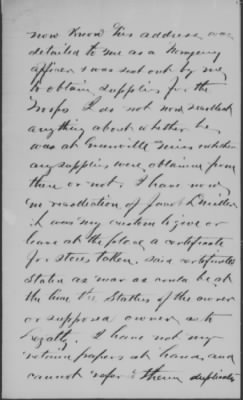 now know his address, was
detailed to me as a company
officer & was sent out by me
to obtain supplies for the
troops I do not now recollect
anything about whether he
was at Greenville Mills whether
any supplies were obtained from
there or not. I have now
no recollection of Jacob Smiller
it was my custom to give or
leave at the place a certificate
for stores taken. said certificates
States as near as could be at
the time the Status of the owner
or supposed owner as to
Loyalty. I have not my
return papers at hand and
cannot refer to them duplicates